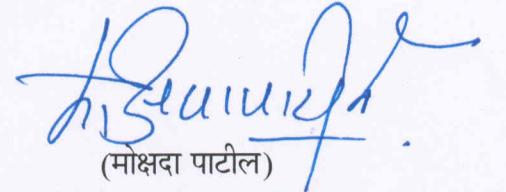 (मोक्षदा पाटील)